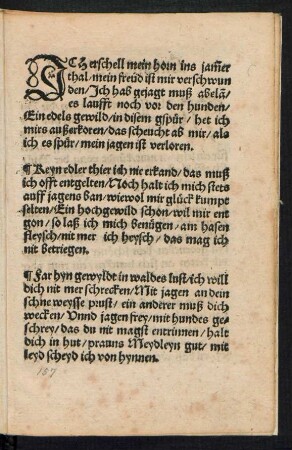 ICh erschell mein horn ins jam̃er
thal/mein freüd ist mir verschwun
den/Ich hab gejagt muß abelã/
es laufft noch vor den hunden/
Ein edels gewild/in disem gspür/ het ich
mirs außerkoren/das scheucht ab mir/als
ich es spür/mein jagen ist verloren.
¶Keyn edler thier ich nie erkand/das muß
ich offt entgelten/Noch halt ich mich stets
auff jagens ban/wiewol mir glück kumpt
selten/Ein hochgewild schön/wil mir ent
gon/so laß ich mich benügen/am hasen
fleysch/nit mer ich heysch/das mag ich
nit betriegen.
¶Far hyn gewyldt in waldes lust/ich will
dich nit mer schrecken/Mit jagen an dein
schne weysse prust/ein anderer muß dich
wecken/Vnnd jagen frey/mit hundes ge-
schrey/das du nit magst entrinnen/halt
dich in hut/prauns Meydleyn gut/mit
leyd scheyd ich von hynnen.
157